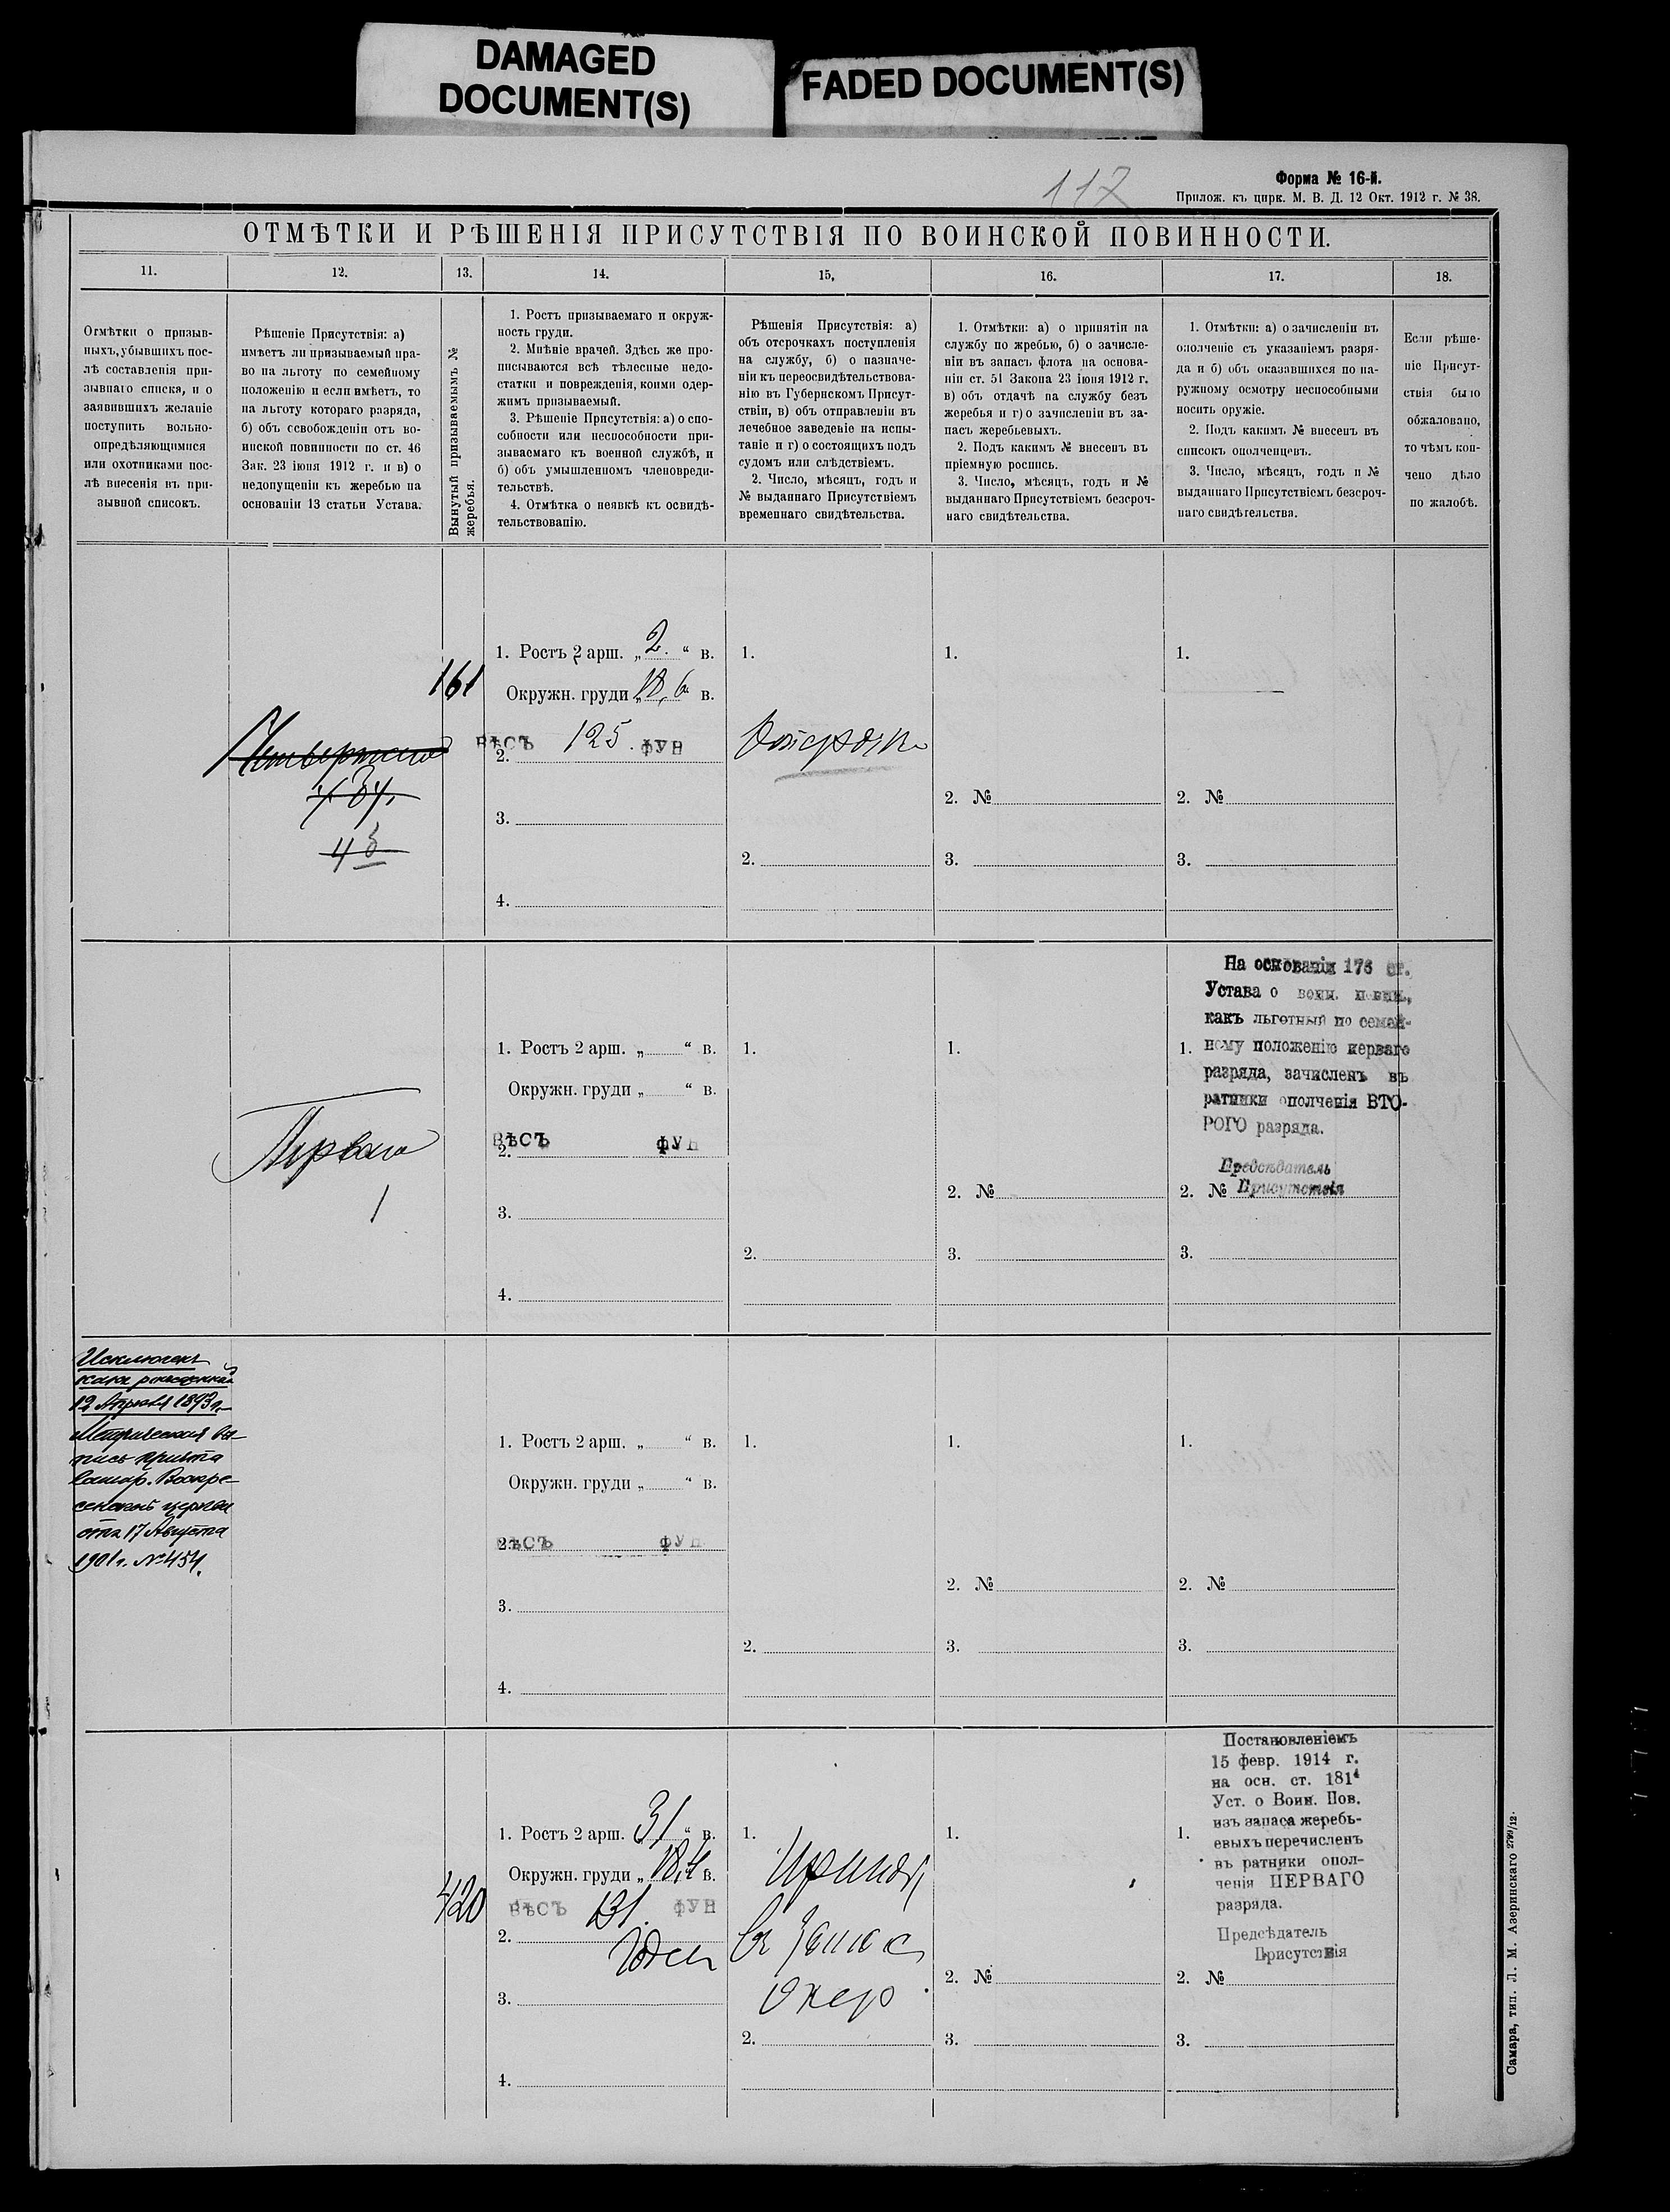 DAMAGED
DOCUMENT(S)
FADED DOCUMENT(S)
117
Форма № 16-й.
Прилож. къ цирк. М. В. Д. 12 Окт. 1912 г. № 38.
ОТМѢТКИ И РѢШЕНІЯ ПРИСУТСТВІЯ ПО ВОИНСКОЙ ПОВИННОСТИ.
11.
12.
13.
14.
15.
16.
17.
18.
Отмѣтки о призыв-
ныхъ, убывшихъ пос-
лѣ составленія при-
зывнаго списка, и о
заявившихъ желаніе
поступить вольно-
опредѣляющимися
или охотниками пос-
лѣ внесенія въ при-
зывной списокъ.
Рѣшеніе Присутствія: а)
имѣетъ ли призываемый пра-
во на льготу по семейному
положенію и если имѣетъ, то
на льготу котораго разряда,
б) объ освобожденіи отъ во-
инской повинности по ст. 46
Зак. 23 іюня 1912 г. и в) о
недопущеніи къ жеребью на
основаніи 13 статьи Устава.
Вынутый призываемымъ №
жеребья.
1. Ростъ призываемаго и окруж-
ность груди.
2. Мнѣніе врачей. Здѣсь же про-
писываются всѣ тѣлесные недо-
статки и поврежденія, коими одер-
жимъ призываемый.
3. Рѣшеніе Присутствія: а) о спо-
собности или неспособности при-
зываемаго къ военной службѣ, и
б) объ умышленномъ членовреди-
тельствѣ.
4. Отмѣтка о неявкѣ къ освидѣ-
тельствованію.
Рѣшенія Присутствія: а)
объ отсрочкахъ поступленія
на службу, б) о назначе-
ніи къ переосвидѣтельствова-
нію въ Губернскомъ Присут-
ствіи, в) объ отправленіи въ
лечебное заведеніе на испы-
таніе и г) о состоящихъ подъ
судомъ или слѣдствіемъ.
2. Число, мѣсяцъ, годъ и
№ выданнаго Присутствіемъ
временнаго свидѣтельства.
1. Отмѣтки: а) о принятіи на
службу по жребью, б) о зачисле-
ніи въ запасъ флота на основа-
ніи ст. 51 Закона 23 іюня 1912 г.
в) объ отдачѣ на службу безъ
жеребья и г) о зачисленіи въ за-
пасъ жеребьевыхъ.
2. Подъ какимъ № внесенъ въ
пріемную роспись.
3. Число, мѣсяцъ, годъ и №
выданнаго Присутствіемъ безсроч-
наго свидѣтельства.
1. Отмѣтки: а) о зачисленіи въ
ополченіе съ указаніемъ разря-
да и б) объ оказавшихся по на-
ружному осмотру неспособными
носить оружіе.
2. Подъ какимъ № внесенъ въ
списокъ ополченцевъ.
3. Число, мѣсяцъ, годъ и №
выданнаго Присутствіемъ безсроч-
наго свидѣтельства.
Если рѣше-
ніе Присут-
ствія было
обжаловано,
то чѣмъ кон-
чено дѣло
по жалобѣ.
Четвертаго
161
1. Ростъ 2 арш. „ 2. “ в.
Окружн. груди „ 18,6 в.
ВѢСЪ 125. ФУН
2.
3.
4.
1.
Отсрочка
2.
1.
2. №
3.
1.
2. №
3.
Перваго
1
1. Ростъ 2 арш. „ “ в.
Окружн. груди „ “ в.
ВѢСЪ ФУН
2.
3.
4.
1.
2.
1.
2. №
3.
На основаніи 176 ст.
Устава о воин. повин.,
какъ льготный по семей-
1. ному положенію перваго
разряда, зачисленъ въ
ратники ополченія ВТО-
РОГО разряда.
Предсѣдатель
2. № Присутствія
3.
Исключенъ
какъ рожденный
12 Апрѣля 1893 г.
Метрическая вы-
пись причта
самар. Воскре-
сенской церкви
отъ 17 Августа
1901 г. № 454.
1. Ростъ 2 арш. „ “ в.
Окружн. груди „ “ в.
2. ВѢСЪ ФУН
3.
4.
1.
2.
1.
2. №
3.
1.
2. №
3.
420
1. Ростъ 2 арш. „ 3/ “ в.
Окружн. груди „ 18,4 в.
ВѢСЪ 131. ФУН
2.
Годен
3.
4.
1.
Принят
въ Запас
2.
1.
2. №
3.
Постановленіемъ
15 февр. 1914 г.
на осн. ст. 181⁴
Уст. о Воин. Пов.
изъ запаса жеребь-
1. евыхъ перечисленъ
въ ратники опол-
ченія ПЕРВАГО
разряда.
Предсѣдатель
Присутствія
2. №
3.
Самара, тип. Л. М. Азеринскаго 2799/12.